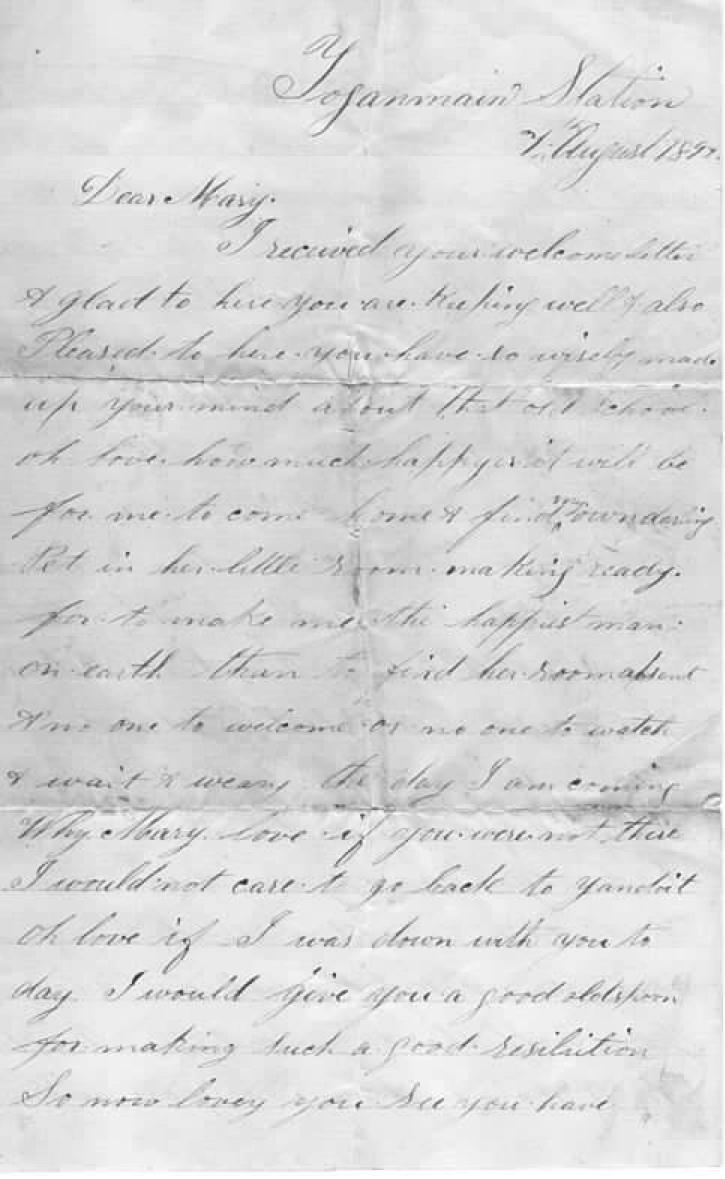 Toganmain Station
7th August 189
Dear Mary.
I received your welcome letter
& glad to here you are keeping well & also
Pleased to here you have so wisely made
up your mind about that old school.
oh love how much happyer it will be
for me to come home & find my own darling
Pet in her little room making ready.
for to make me the happiest man
on earth than to find her room absent
& no one to welcome or no one to watch
& wait & weary the day I am coming
Why Mary love if you were not there
I would not care to go back to Yandoit
Oh love if I was down with you to
day I would give you a good old
for making such a good resilution
So now lovey you see you have